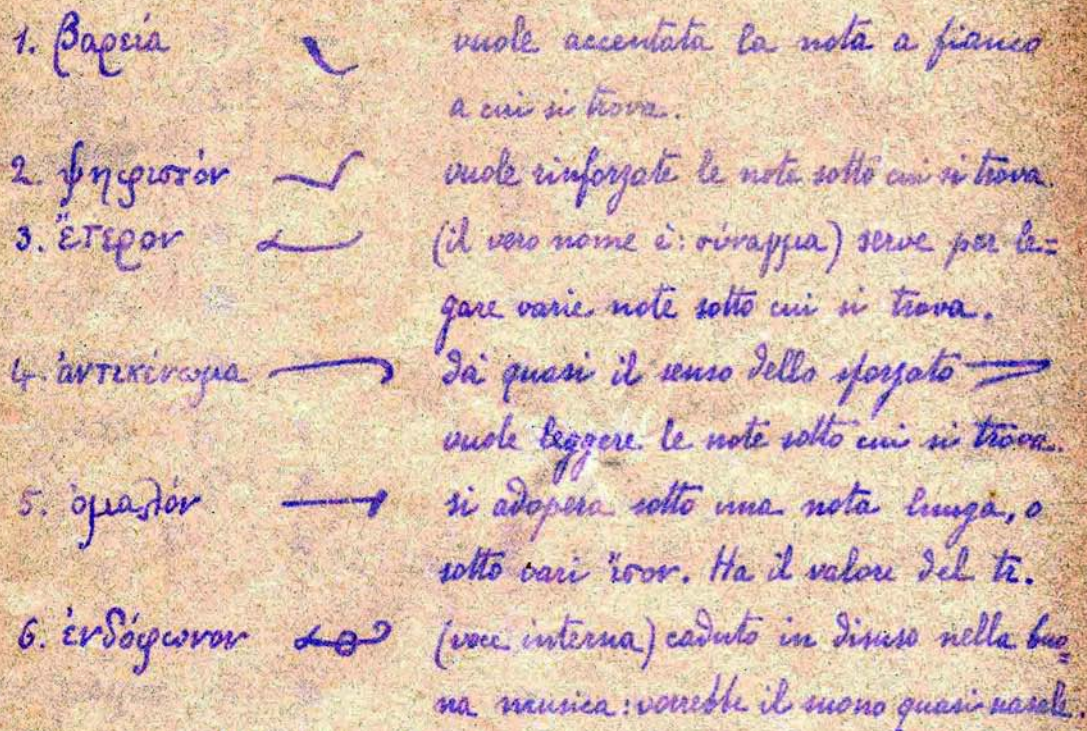 1. βαρεία vuole accentata la nota a fianco
a cui si trova.
2. ψηφιστόν vuole rinforzate le note sotto cui si trova.
3. ἕτερον (il vero nome è: σύναγμα) serve per le=
gare varie note sotto cui si trova.
4. ἀντικένωμα dà quasi il senso dello sforzato
vuole leggere le note sotto cui si trova.
5. ὁμαλόν si adopera sotto una nota lunga, o
sotto vari ἴσον. Ha il valore del tr.
6. ἐνδόφωνον (voce interna) caduto in disuso nella buo=
na musica: vorrebbe il suono quasi nasale.